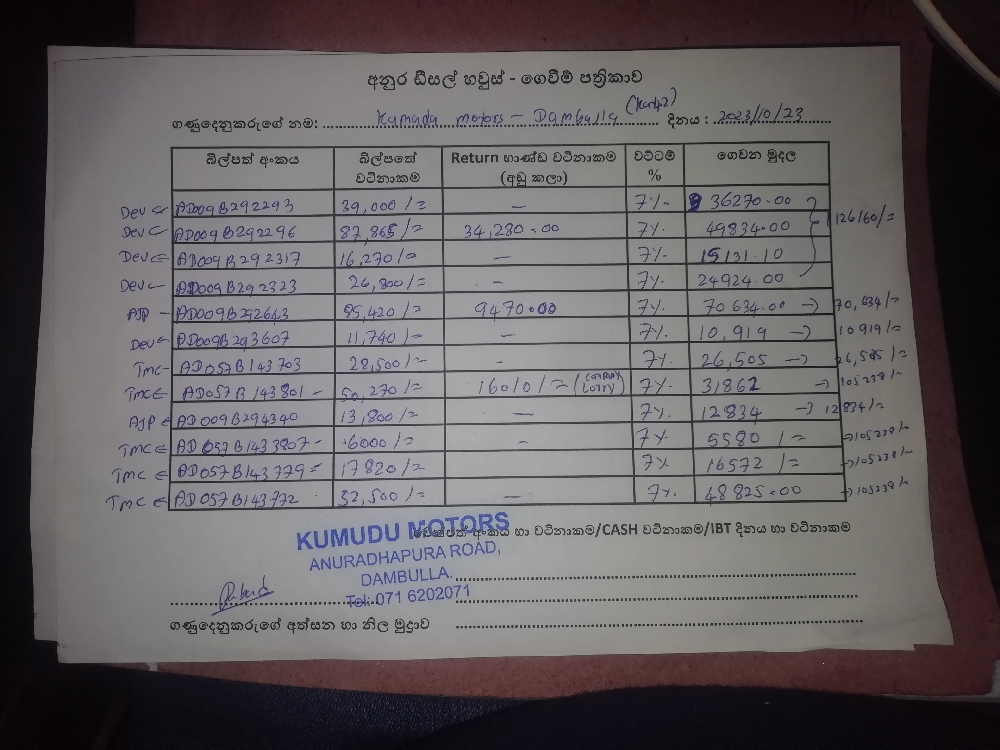 අනුර ඩීසල් හවුස් - ගෙවීම් පත්‍රිකාව
ගණුදෙනුකරුගේ නම: Kumudu motors - Dambulla දිනය : 2023/10/23
බිල්පත් අංකය බිල්පතේ වටිනාකම Return භාණ්ඩ වටිනාකම (අඩු කලා) වට්ටම් % ගෙවන මුදල
Dev AD009B292293 39,000/= - 7%. 36270.00
Dev AD009B292296 87,865/= 34,280.00 7% 49834.00 126160/=
Dev AD009B292317 16,270/= - 7% 15131.10
Dev AD009B292323 26,800/= - 7% 24924.00
AJP - AD009B292643 85,420/= 9470.00 7% 70634.00 → 70,634/=
Dev AD009B293607 11,740/= - 7%. 10,919 → 10919/=
Tmc - AD057B143703 28,500/= - 7%. 26,505 → 26,505/=
TMC AD057B143801 - 50,270/= 16010/= (company Lorry) 7% 31862 → 105238/=
AJP AD009B294340 13,800/= - 7%. 12834 → 12834/=
TMC AD057B1433807 - 6000/= - 7% 5580/= →105238/=
TMC AD057B143779 17820/= 7% 16572/= →105238/=
TMC AD057B143772 52,500/= - 7%. 48825.00 →105238/=
KUMUDU MOTORS
අංකය හා වටිනාකම/CASH වටිනාකම/IBT දිනය හා වටිනාකම
ANURADHAPURA ROAD,
DAMBULLA.
Tel: 071 6202071
ගණුදෙනුකරුගේ අත්සන හා නිල මුද්‍රාව